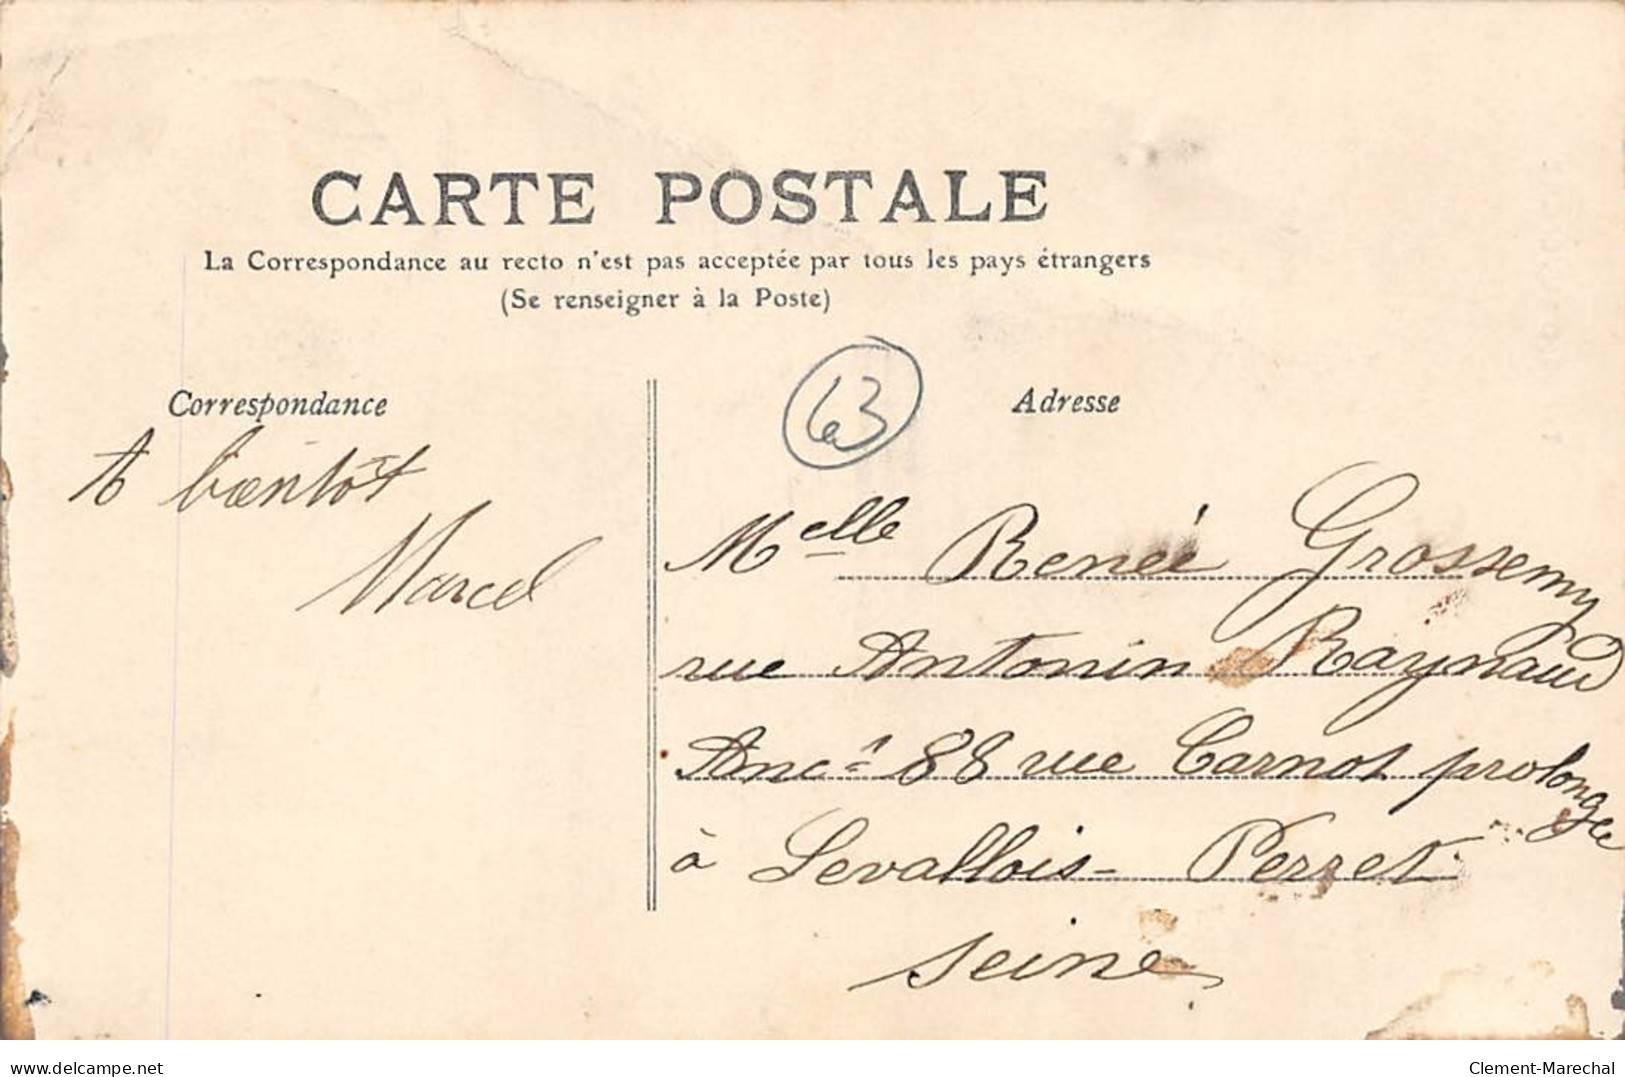 CARTE POSTALE
La Correspondance au recto n'est pas acceptée par tous les pays étrangers
(Se renseigner à la Poste)
Correspondance
A bientôt
Marcel
63
Adresse
Melle Renée Grossemy
rue Antonin Raynaud
Anct 88 rue Carnot prolongée
à Levallois-Perret
Seine
delcampe.net
Clement-Marechal